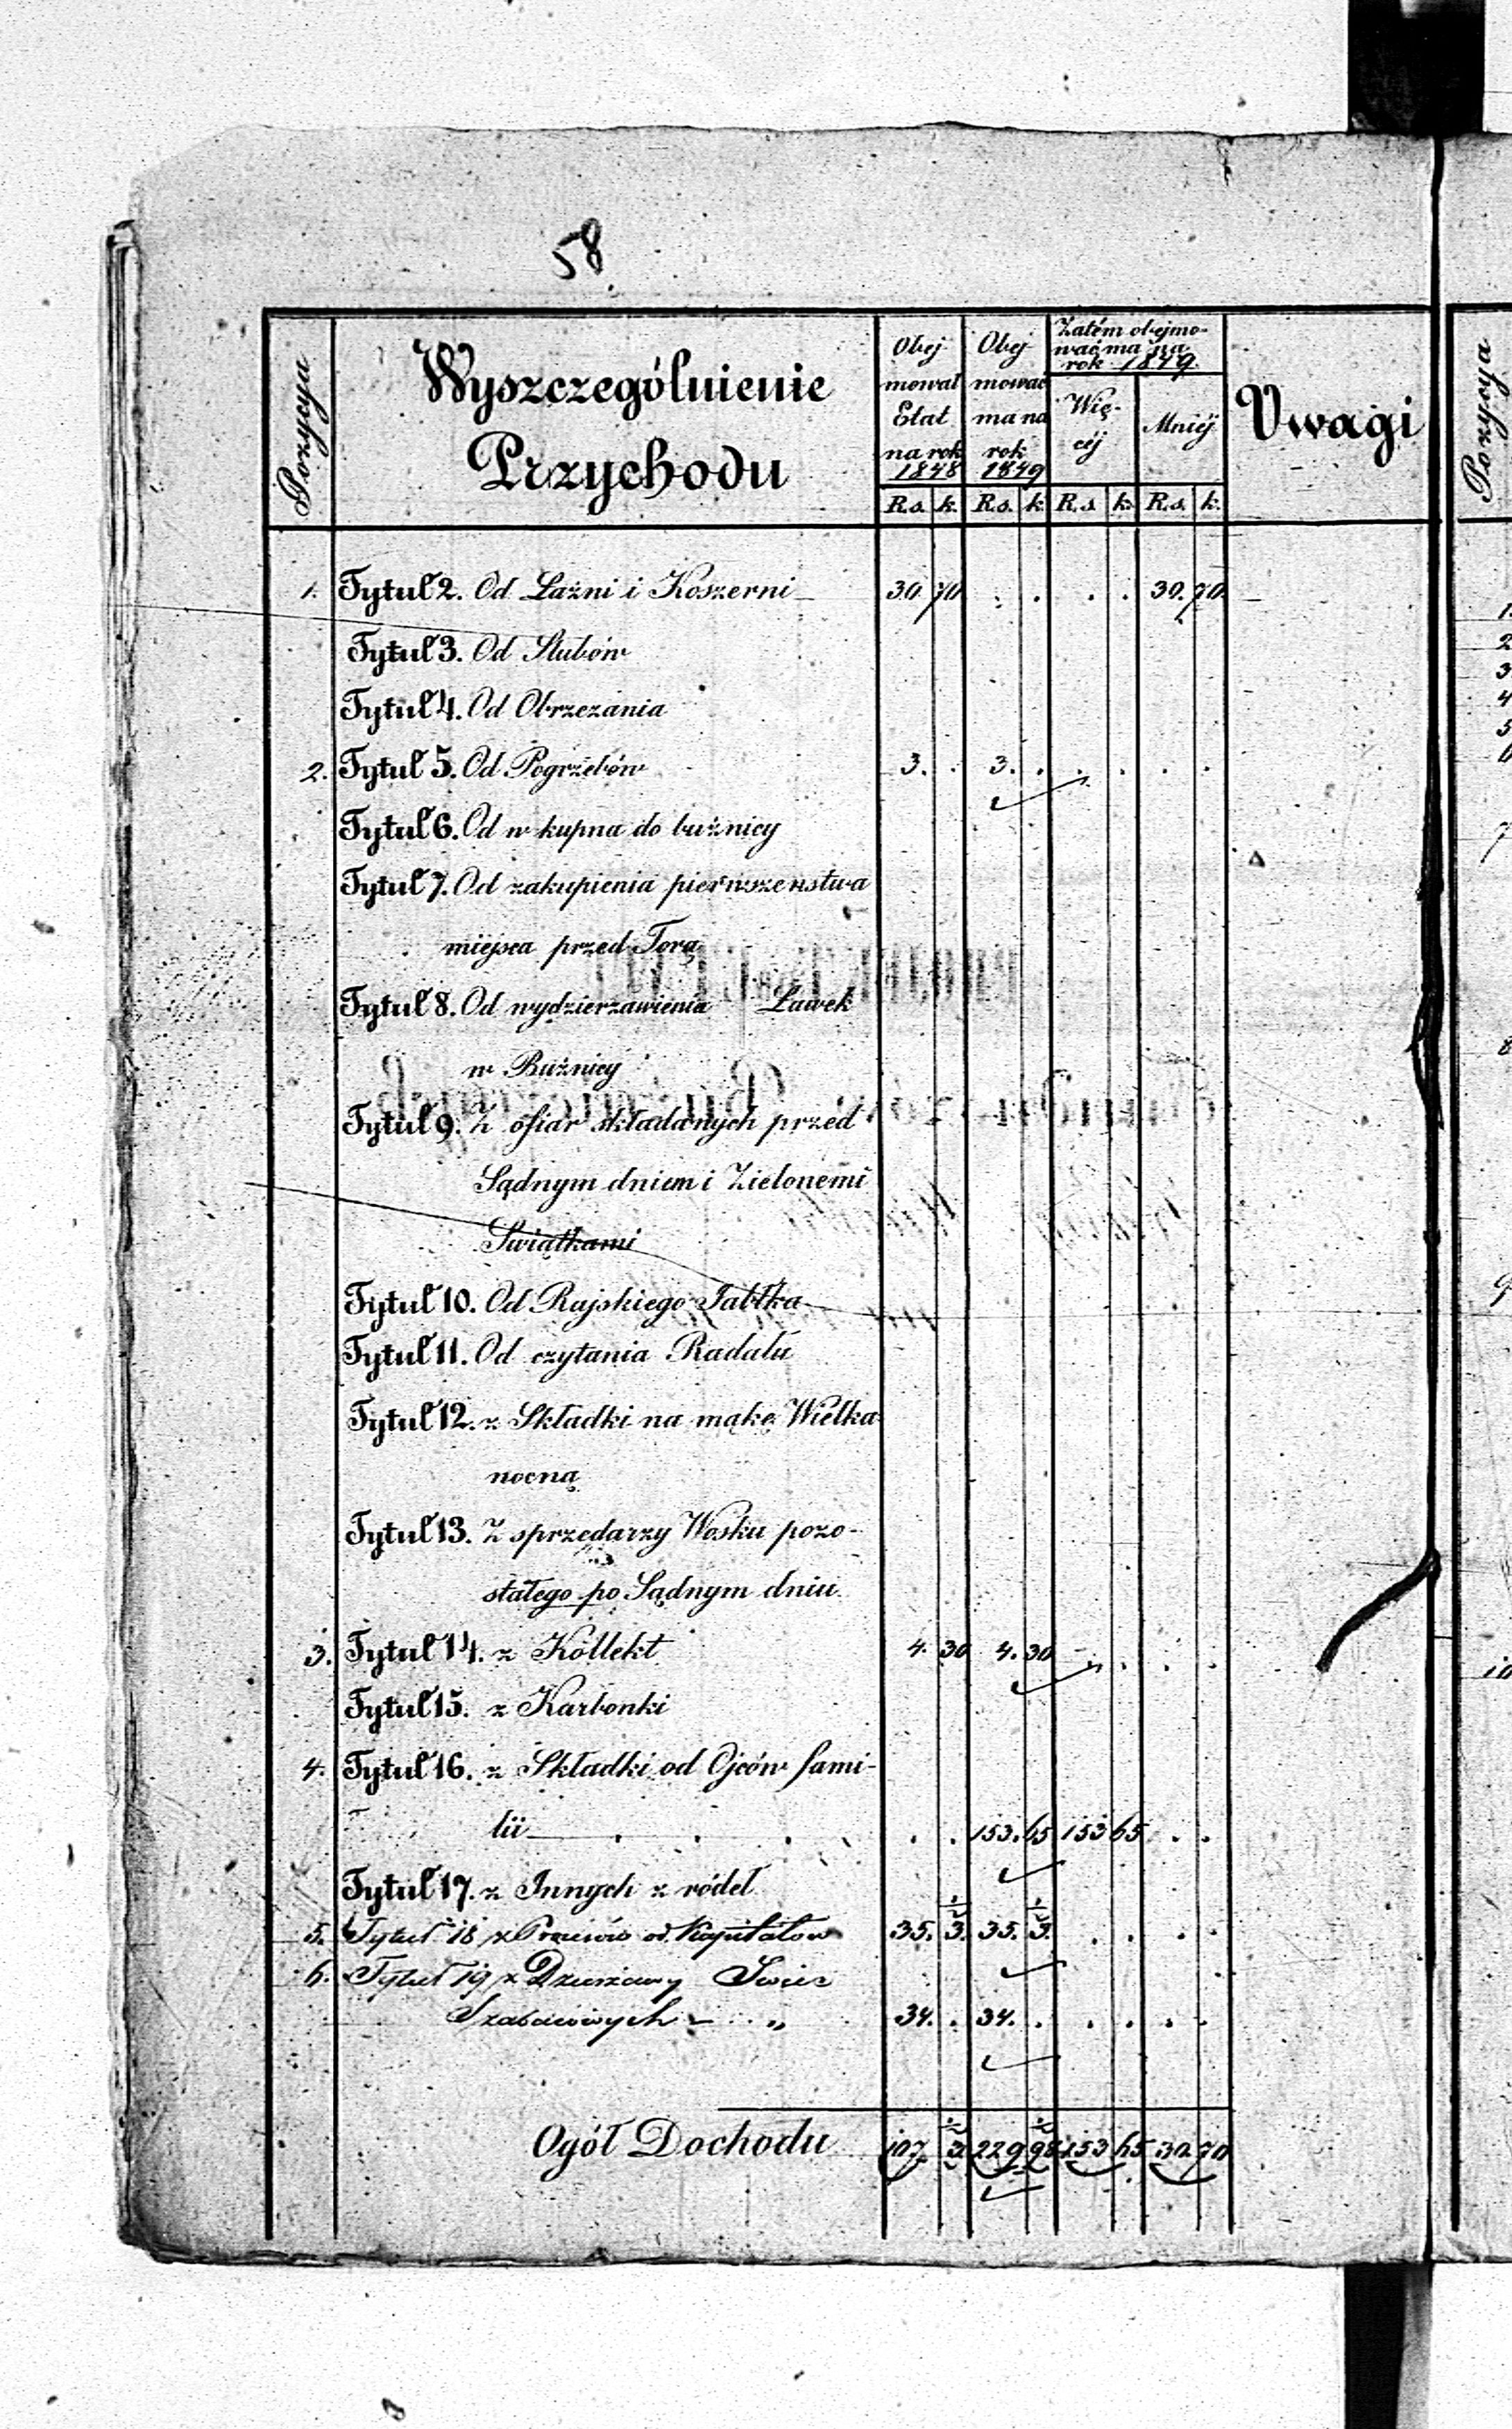 58.
Pozycya
Wyszczególnienie
Przychodu
Obej
mował
Etat
na rok
1848
Obej
mować
ma na
rok
1849
Zatém obejmo-
wać ma na
rok 1849.
Wię-
céj
Mniéj
Uwagi
R.s. k. R.s. k. R.s. k. R.s. k.
1. Tytuł 2. Od Łaźni i Koszerni 30. 70 . . . . 30. 70.
Tytuł 3. Od Slubów
Tytuł 4. Od Obrzezania
2. Tytuł 5. Od Pogrzebów 3. . 3. . . . . .
Tytuł 6. Od w kupna do bużnicy
Tytuł 7. Od zakupienia pierwszenstwa
miejsca przed Torą
Tytuł 8. Od wydzierzawienia Ławek
w Bużnicy
Tytuł 9. Z ofiar składanych przed
Sądnym dniem i Zielonemi
Swiątkami
Tytuł 10. Od Rajskiego Jabłka
Tytuł 11. Od czytania Radału
Tytuł 12. z Składki na mąkę Wielka
nocną
Tytuł 13. Z sprzedarzy Wosku pozo-
stałego po Sądnym dniu
3. Tytuł 14. z Kollekt 4. 30 4. 30 . . . .
Tytuł 15. z Karbonki
4. Tytuł 16. z Składki od Ojców fami-
lii . . . . . 153. 65 153 65 . .
Tytuł 17. z Innych z ródeł
5. Tytuł 18 z Procentów od Kapitałow 35. 3½ 35. 3½ . . . .
6. Tytuł 19 z Dzierżawy Swiec
Szabasowych „ 34. . 34. . . . . .
Ogół Dochodu 107 3½ 229 98½ 153 65 30 70
Pozycya
1.
2
3
4
5
6
7
8
9
10